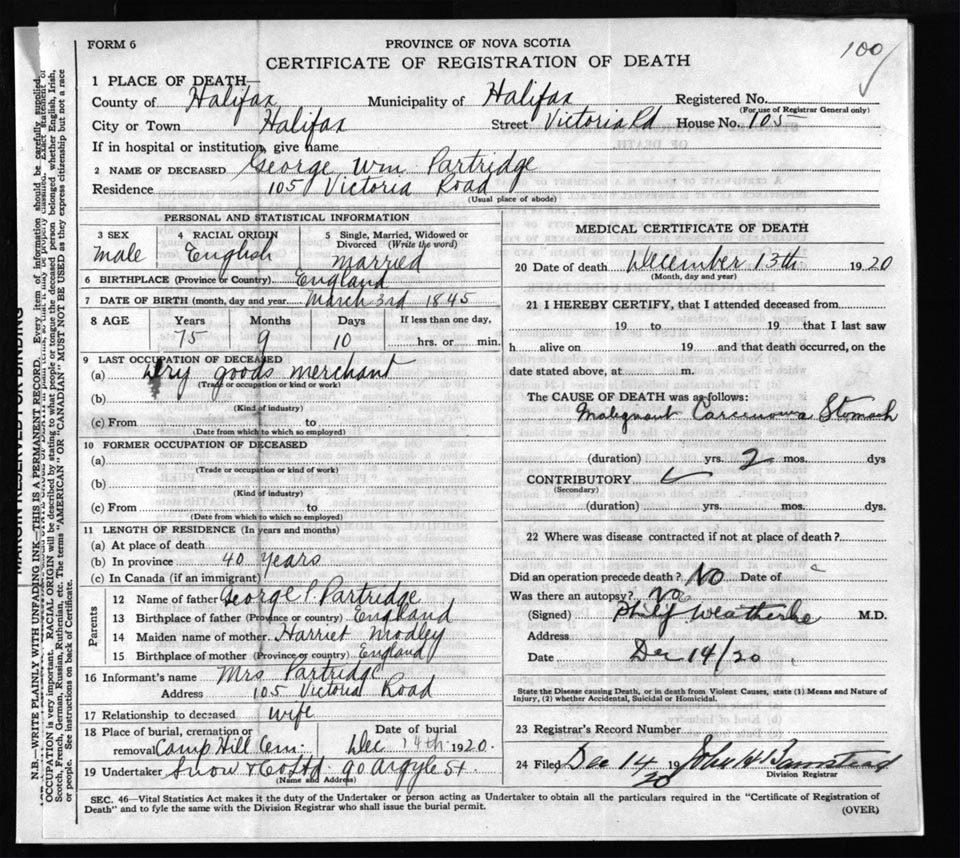 100
FORM 6
PROVINCE OF NOVA SCOTIA
CERTIFICATE OF REGISTRATION OF DEATH
1 PLACE OF DEATH—
County of Halifax Municipality of Halifax Registered No.
(For use of Registrar General only)
City or Town Halifax Street Victoria Rd House No. 105
If in hospital or institution, give name
2 NAME OF DECEASED George Wm Partridge
Residence 105 Victoria Road
(Usual place of abode)
PERSONAL AND STATISTICAL INFORMATION
3 SEX 4 RACIAL ORIGIN 5 Single, Married, Widowed or
Divorced (Write the word)
Male English Married
6 BIRTHPLACE (Province or Country) England
7 DATE OF BIRTH (month, day and year) March 3rd 1845
8 AGE Years Months Days If less than one day,
75 9 10 hrs. or min.
9 LAST OCCUPATION OF DECEASED
(a) Dry goods merchant
(Trade or occupation or kind or work)
(b)
(Kind of industry)
(c) From to
(Date from which to which so employed)
10 FORMER OCCUPATION OF DECEASED
(a)
(Trade or occupation or kind of work)
(b)
(Kind of industry)
(c) From to
(Date from which to which so employed)
11 LENGTH OF RESIDENCE (In years and months)
(a) At place of death
(b) In province 40 years
(c) In Canada (if an immigrant)
Parents
12 Name of father George P. Partridge
13 Birthplace of father (Province or country) England
14 Maiden name of mother Harriet Modley
15 Birthplace of mother (Province or country) England
16 Informant's name Mrs Partridge
Address 105 Victoria Road
17 Relationship to deceased wife
18 Place of burial, cremation or Date of burial
removal Camp Hill Cem. Dec 14th 1920.
19 Undertaker Snow & Co Ltd 90 Argyle St
(Name and Address)
MEDICAL CERTIFICATE OF DEATH
20 Date of death December 13th 1920
(Month, day and year)
21 I HEREBY CERTIFY, that I attended deceased from
19 to 19 that I last saw
h alive on 19 and that death occurred, on the
date stated above, at m.
The CAUSE OF DEATH was as follows:
Malignant Carcinoma Stomach
(duration) yrs. 2 mos. dys
CONTRIBUTORY
(Secondary)
(duration) yrs. mos. dys.
22 Where was disease contracted if not at place of death?
Did an operation precede death? No Date of
Was there an autopsy? No
(Signed) Philip Weatherbe M.D.
Address
Date Dec 14/20
State the Disease causing Death, or in death from Violent Causes, state (1) Means and Nature of
Injury, (2) whether Accidental, Suicidal or Homicidal.
23 Registrar's Record Number
24 Filed Dec 14 1920 John H
Division Registrar
SEC. 46—Vital Statistics Act makes it the duty of the Undertaker or person acting as Undertaker to obtain all the particulars required in the "Certificate of Registration of
Death" and to fyle the same with the Division Registrar who shall issue the burial permit. (OVER)
MARGIN RESERVED FOR BINDING
N.B.—WRITE PLAINLY WITH UNFADING INK—THIS IS A PERMANENT RECORD. Every item of information should be carefully supplied.
OCCUPATION is very important. RACIAL ORIGIN will be described by stating to what people or tongue the deceased person belonged whether English, Irish,
Scotch, French, German, Russian, Ruthenian, etc. The terms "AMERICAN" OR "CANADIAN" MUST NOT BE USED as they express citizenship but not a race
or people. See instructions on back of Certificate.